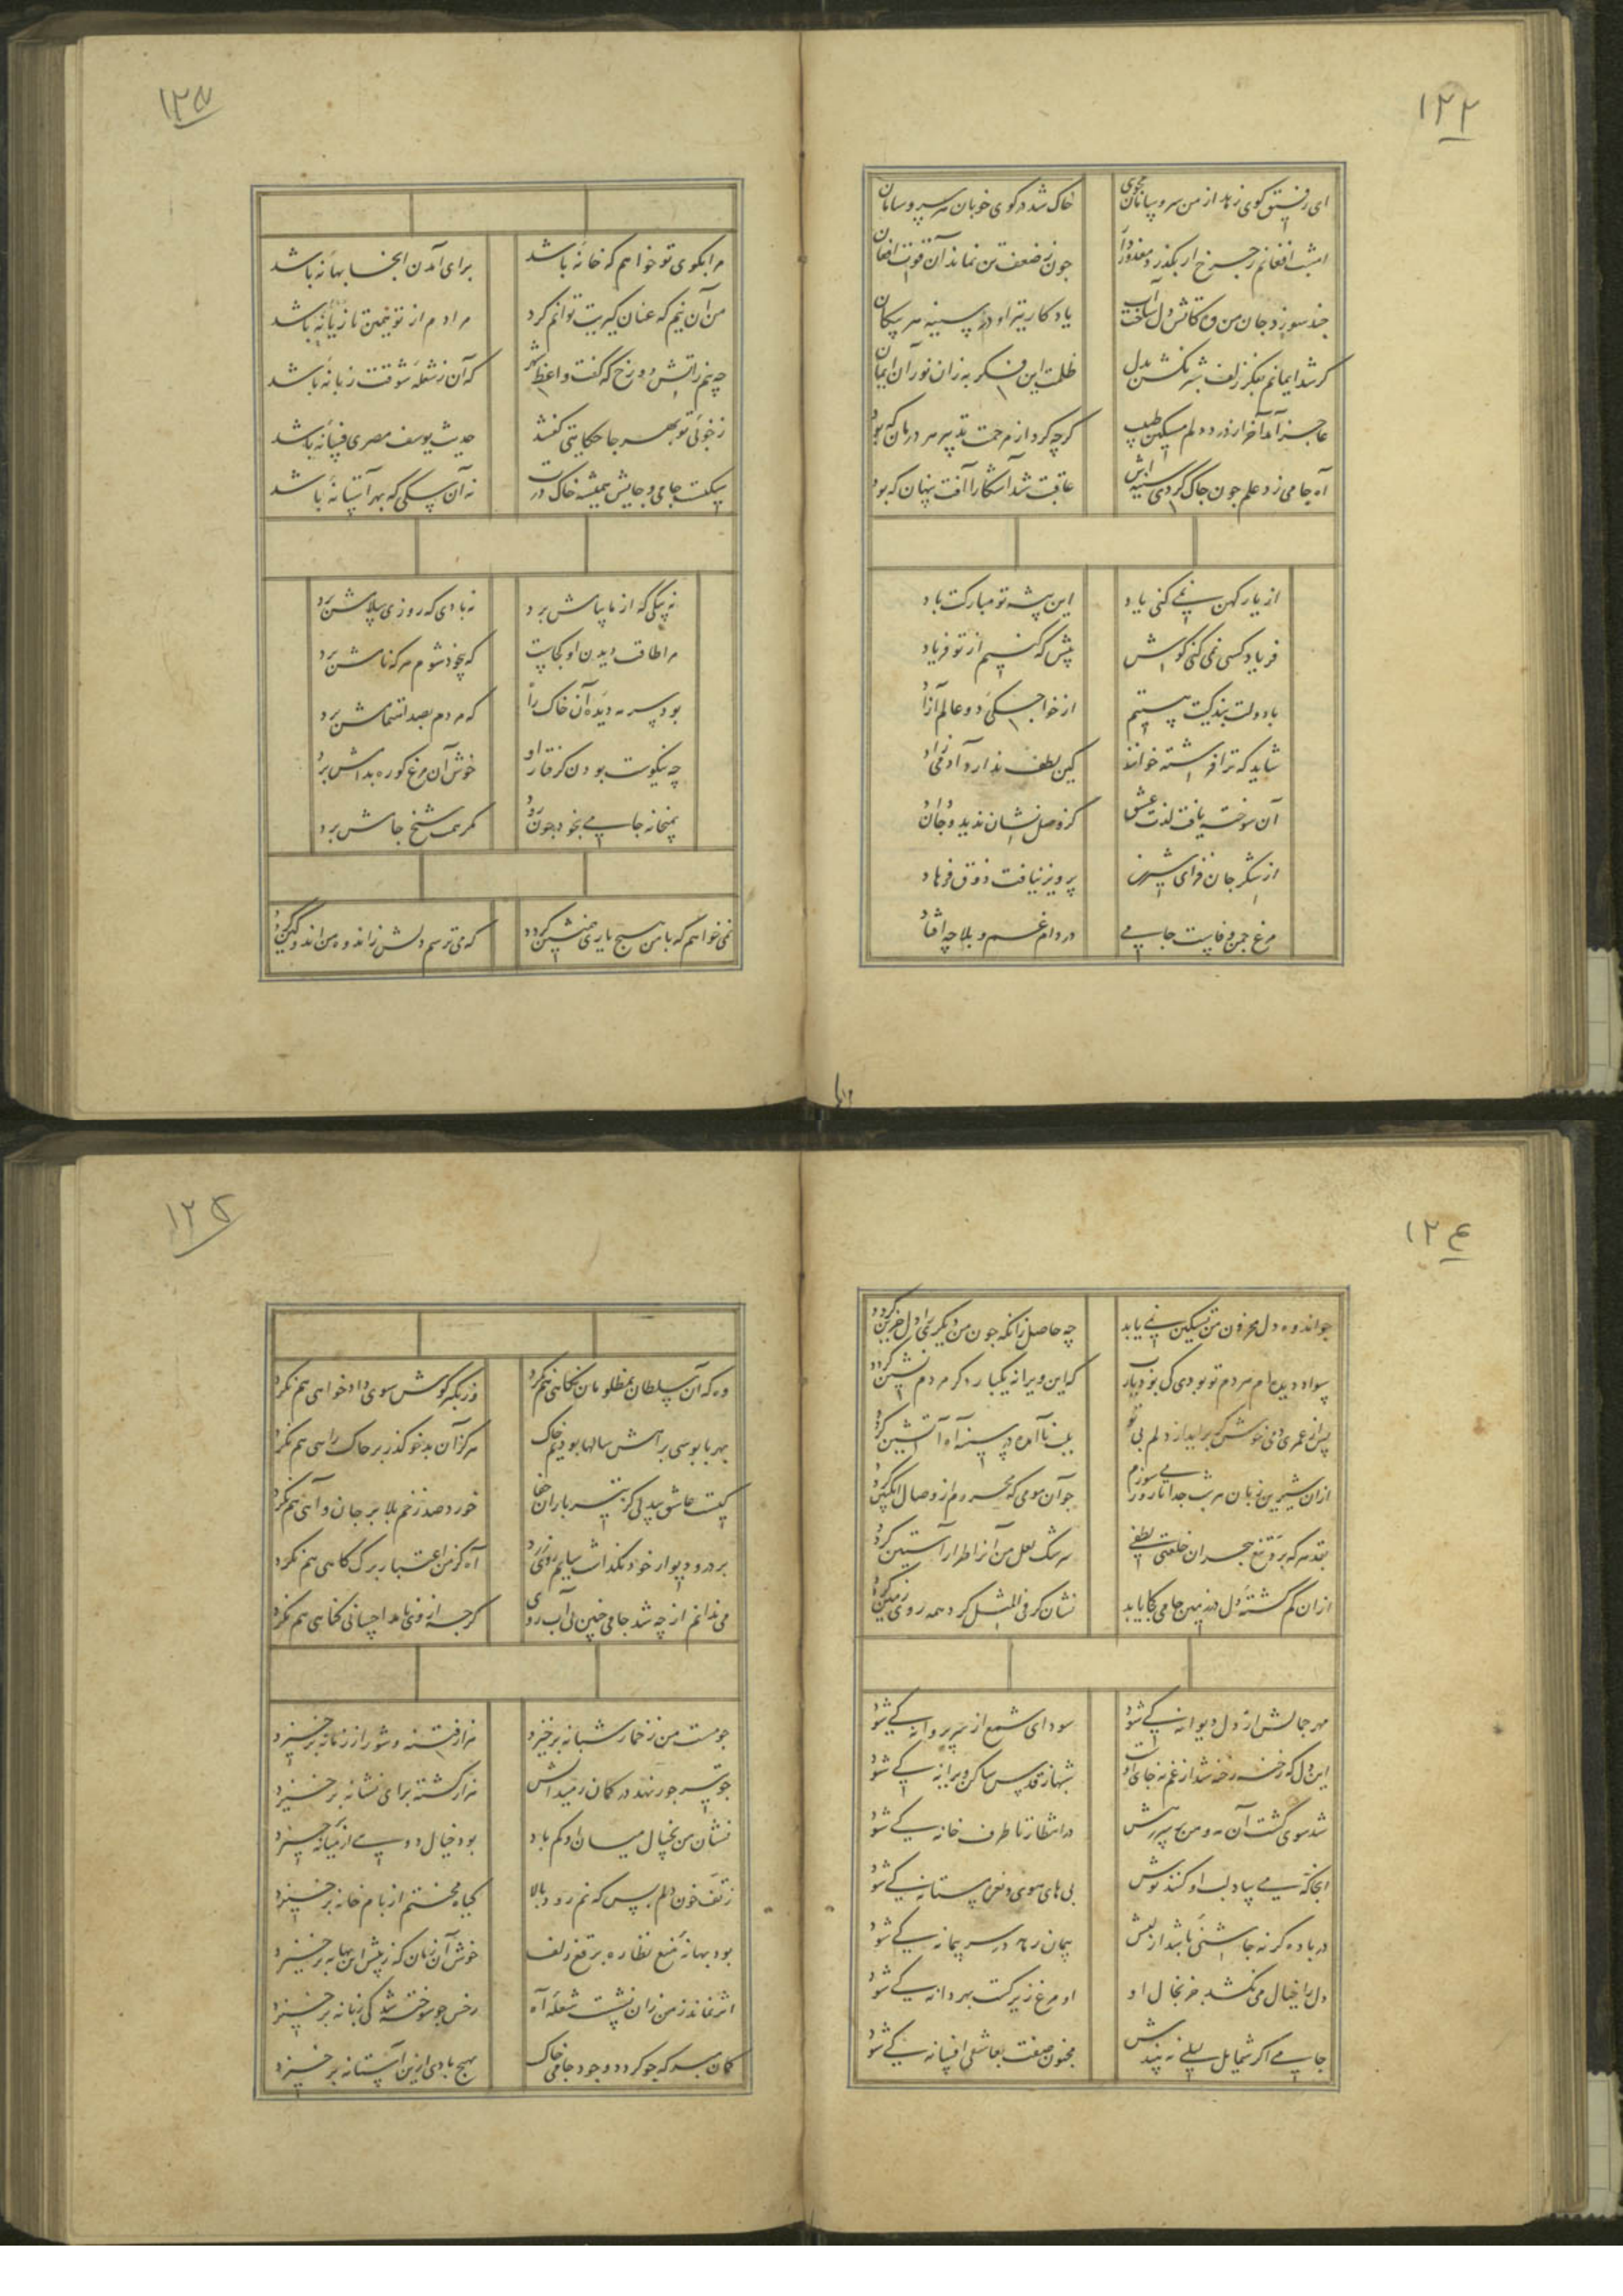 ۱۲۲
ای رفیق نیکوی زهد از من سر و سامان مجوی خاک شد در کوی خوبان هر سر و سامان
امشب افغانم ز چرخ ار نگذرد معذور دار جون ز ضعف تن نماند آن قوت افغان
جند سوزد جان من یاد کار تیر او در سینه هر پیکان
کر شد ایمانم بفکر زلف ظلمت این فکر به زان نور آن ایمان
عاجز آمد آخر از درد دلم مسکین طبیب کرچه کرد از مرحمت تدبیر هر درمان که بود
آه جامی زد علم جون جاک کردی سینه اش عاقبت شد آشکارا آفت پنهان که بود
از یار کهن نمی کنی یاد این پیشه تو مبارکت باد
فریاد کسی نمی کنی کوش پیش که کنیم از تو فریاد
با دولت بندکیت هستیم از خواجکی دو عالم آزاد
شاید که ترا فرشته خوانند کین لطف ندارد آدمی زاد
آن سوخته یافت لذت عشق کز وصل نشان ندید و جان داد
از شکر جان فزای شیرین پرویز نیافت ذوق فرهاد
مرغ جمن وفاست جامی در دام غم و بلا چه افتاد
۱۲۳
مرا بکوی تو خواهم که خانه باشد برای آمدن آنجا بهانه باشد
من آن نیم که عنان کیریت توانم کرد مرادم از تو همین تازیانه باشد
چه بیم ز آتش دوزخ که کفت واعظ شهر که آن ز شعله شوقت زبانه باشد
ز خوبی تو بهر جا حکایتی کنند حدیث یوسف مصری فسانه باشد
سکت جامی و جایش همیشه خاک درت نه آن سکی که بهر آستانه باشد
نه پیکی که از ما پیامش برد نه بادی که روزی سلامش برد
مرا طاقت دیدن او کجاست که بیخود شوم هر که نامش برد
بود سرمه دیده آن خاک را که مردم بصد التماسش برد
چه نیکوست بودن کرفتار او خوش آن مرغ کو ره بدامش برد
بمیخانه جامی بیخود جون رود مکر همت شیخ جامش برد
نمی خواهم که با من هیچ یاری همنشین کردد که می ترسم دلش ز اندوه من اندوهکین کردد
۱۲۴
جو اندوه دل محزون من تسکین نمی یابد چه حاصل زانکه جون من دیکری را دل حزین کردد
سواد دیده ام مردم تو بودی که این ویرانه یکبار دکر مردم نشین کردد
پس از عمری دمی خوش کر برآید از دلم بی تو بلب نا آمده در سینه آه آتشین کردد
از آن شیرین زبان هر شب جدا تا روز می سوزم جو آن مومی که محروم از وصال انکبین کردد
بقد هر که برد تیغ هجران خلعتی لطفی سرشک لعل من آنرا طراز آستین کردد
از آن کم کشته دل جامی کجا یابد نشان کر فی المثل کرد همه روی زمین کردد
مهر جمالش از دل دیوانه کی شود سودای شمع از سر پروانه کی شود
این دل که رخنه رخنه شد از غم نه جای اوست شهباز قدس ساکن ویرانه کی شود
شد سوی کشت آن مه و من بر سر رهش در انتظار تا طرف خانه کی شود
آنجا که می بیاد لب او کنند نوش بی های هوی و نعره مستانه کی شود
در باده کر نه چاشنی باشد از لبش پیمان زاهد در سر پیمانه کی شود
دل را خیال می نکشد جز بخال او او مرغ زیرکست بهر دانه کی شود
جامی اگر شمایل لیلی نه بیندش مجنون صفت بعاشقی افسانه کی شود
۱۲۵
وه که آن سلطان بمظلومان نکاهی هم نکرد وز تکبر کوش سوی دادخواهی هم نکرد
بهر پابوسی براهش سالها بودیم خاک هرکز آن بدخو کذر بر خاک راهی هم نکرد
کیست عاشق بیدلی کز تیر باران جفا خورد صد زخم بلا بر جان و آهی هم نکرد
بر در و دیوار خود نکذاشت سایم روی زرد آه کز من اعتبار برک کاهی هم نکرد
می ندانم از چه شد جامی جنین بی آب روی کرچه از وی نامد احسانی کناهی هم نکرد
جو مست من ز خمار شبانه برخیزد هزار فتنه و شور از زمانه برخیزد
جو تیر جور نهد در کمان ز میدانش هزار کشته برای نشانه برخیزد
نشان من بخیال میان او کم باد بود خیال دویی از میانه برخیزد
ز تف خون دلم بس که نم رود بالا کیاه محنتم از بام خانه برخیزد
بود بهانه منع نظاره برقع زلف خوش آن زمان که ز پیش این بهانه برخیزد
اثر نماند ز من زان نشست شعله آه جو سوخته شد کی زبانه برخیزد
کمان مبر که جو کردد وجود جامی خاک بهیچ بادی ازین آستانه برخیزد